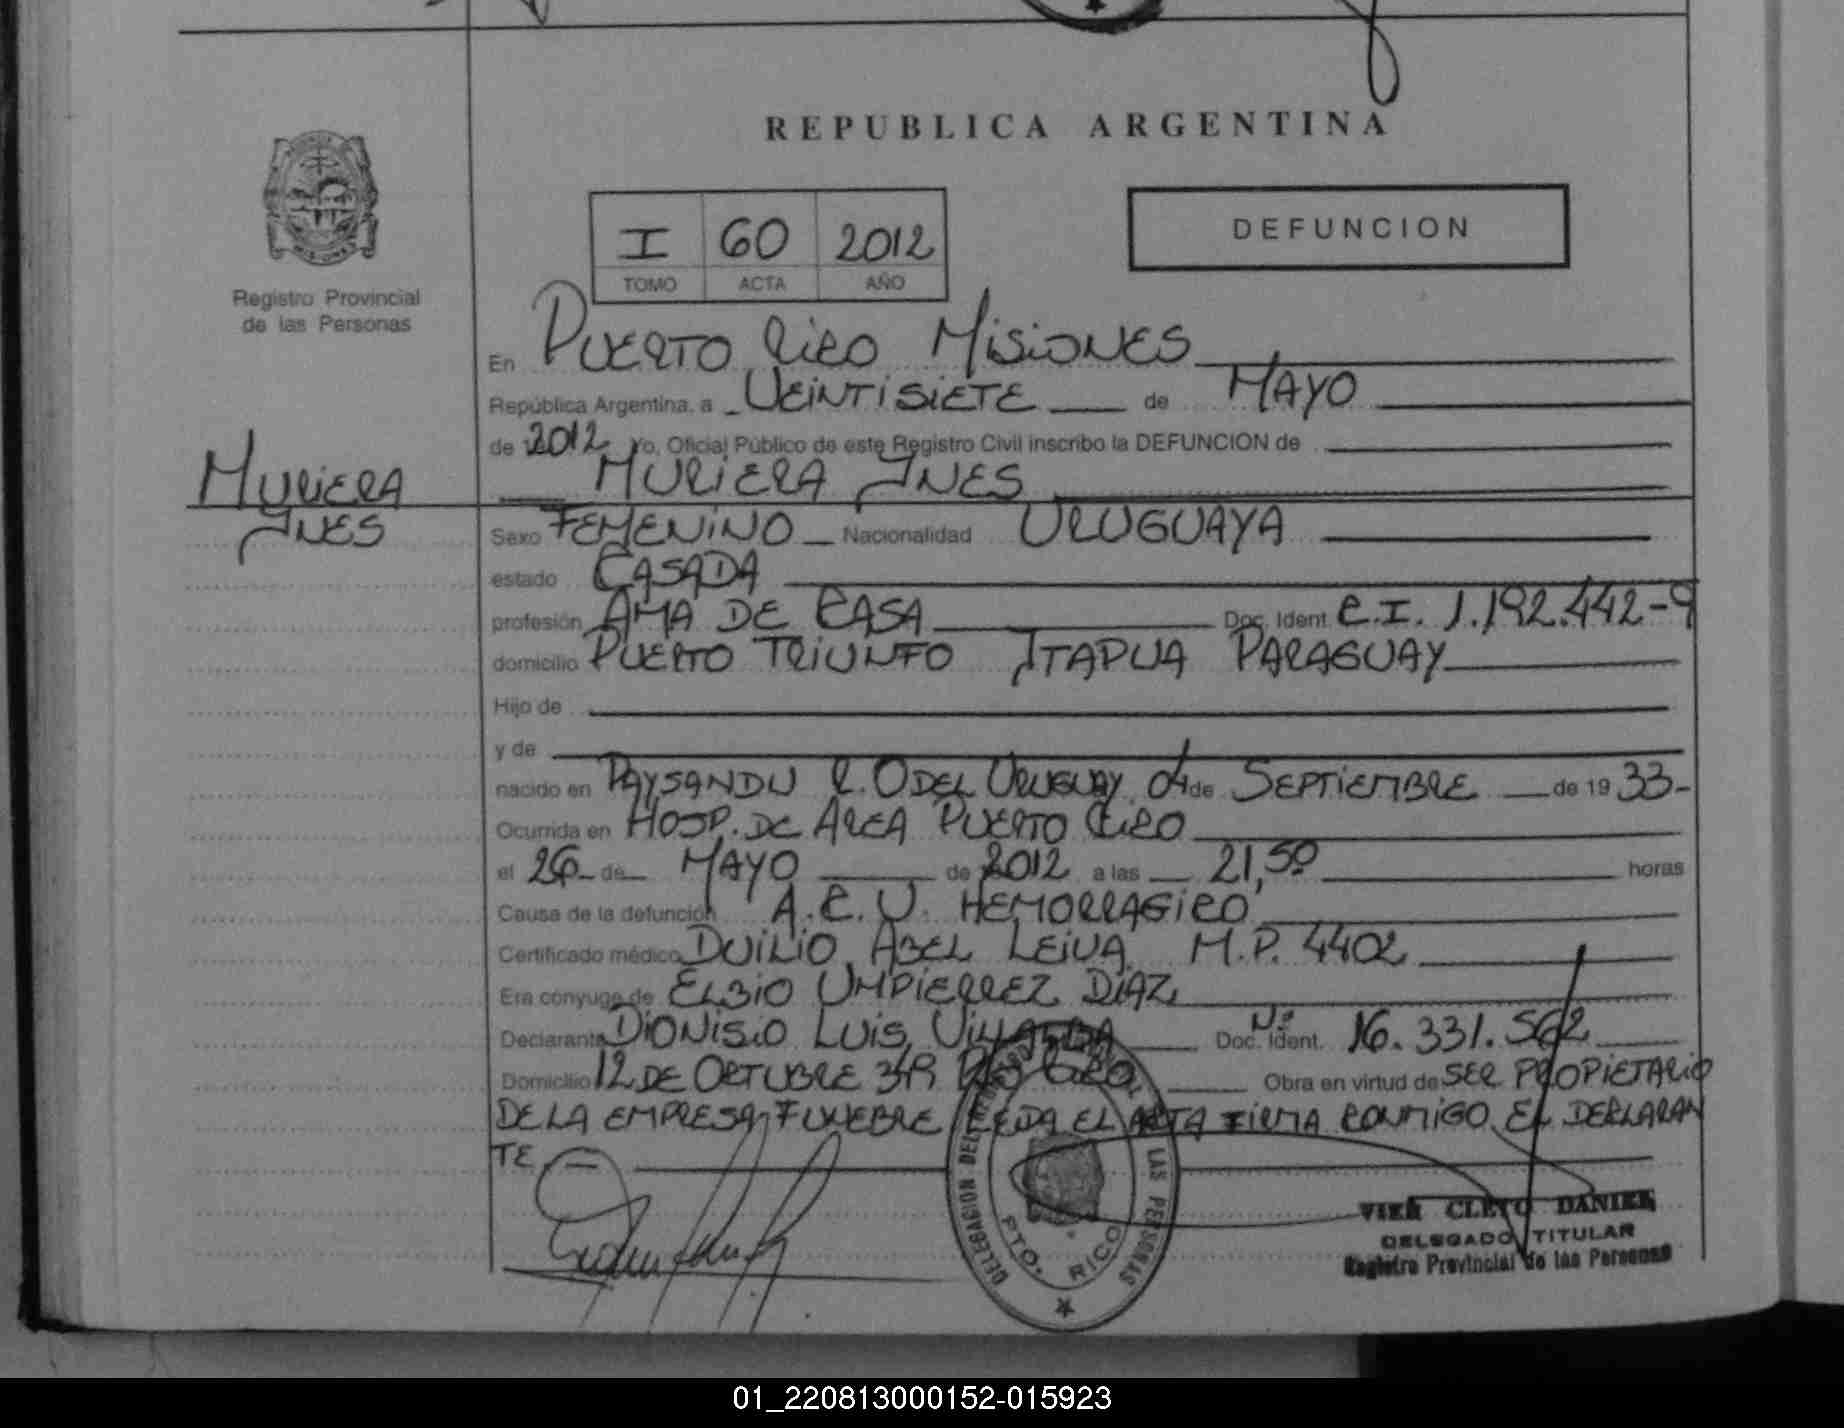 REPUBLICA ARGENTINA
MISIONES
Registro Provincial
de las Personas
I 60 2012
TOMO ACTA AÑO
DEFUNCION
En PUERTO RICO MISIONES
República Argentina, a VEINTISIETE de MAYO
de 2012 Yo, Oficial Público de este Registro Civil inscribo la DEFUNCION de
MURIERA INES
MURIERA
INES
Sexo FEMENINO Nacionalidad URUGUAYA
estado CASADA
profesión AMA DE CASA Doc. Ident. C.I. 1.192.442-9
domicilio PUERTO TRIUNFO ITAPUA PARAGUAY
Hijo de
y de
nacido en PAYSANDU R.O DEL URUGUAY de SEPTIEMBRE de 1933-
Ocurrida en HOSP. DE AREA PUERTO RICO
el 26 de MAYO de 2012 a las 21,50 horas
Causa de la defunción A.C.V. HEMORRAGICO
Certificado médico DUILIO ABEL LEIVA M.P. 4402
Era cónyuge de ELBIO UMPIERREZ DIAZ
Declarante DIONISIO LUIS VILLALBA Doc. Ident. Nº 16.331.562
Domicilio 12 DE OCTUBRE PTO RICO Obra en virtud de SER PROPIETARIO
DE LA EMPRESA FUNEBRE LEIDA EL ACTA FIRMA CONMIGO EL DECLARAN
TE
DELEGACION DEL REGISTRO PROVINCIAL DE LAS PERSONAS
PTO. RICO
VIER CLETO DANIEL
DELEGADO TITULAR
Registro Provincial de las Personas
01_220813000152-015923